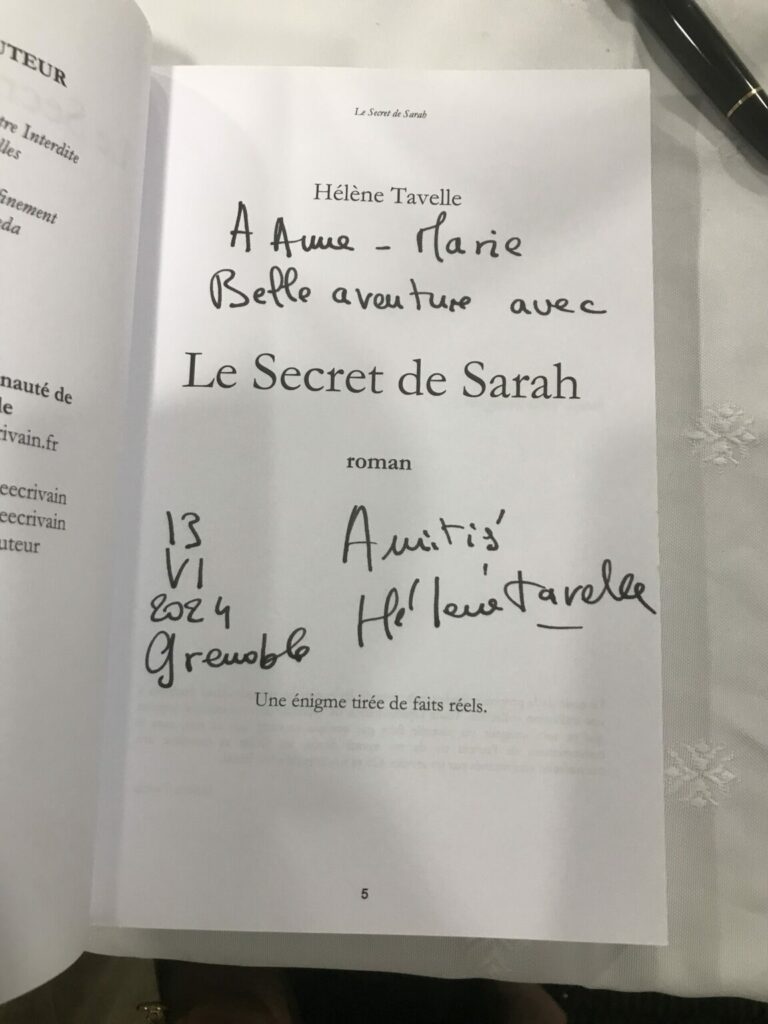 UTEUR
tre Interdite
lles
finement
eda
nauté de
le
rivain.fr
eecrivain
eecrivain
uteur
Le Secret de Sarah
Hélène Tavelle
A Anne - Marie
Belle aventure avec
Le Secret de Sarah
roman
13
VI
2024
Grenoble
Amitié
Hélène Tavelle
Une énigme tirée de faits réels.
5